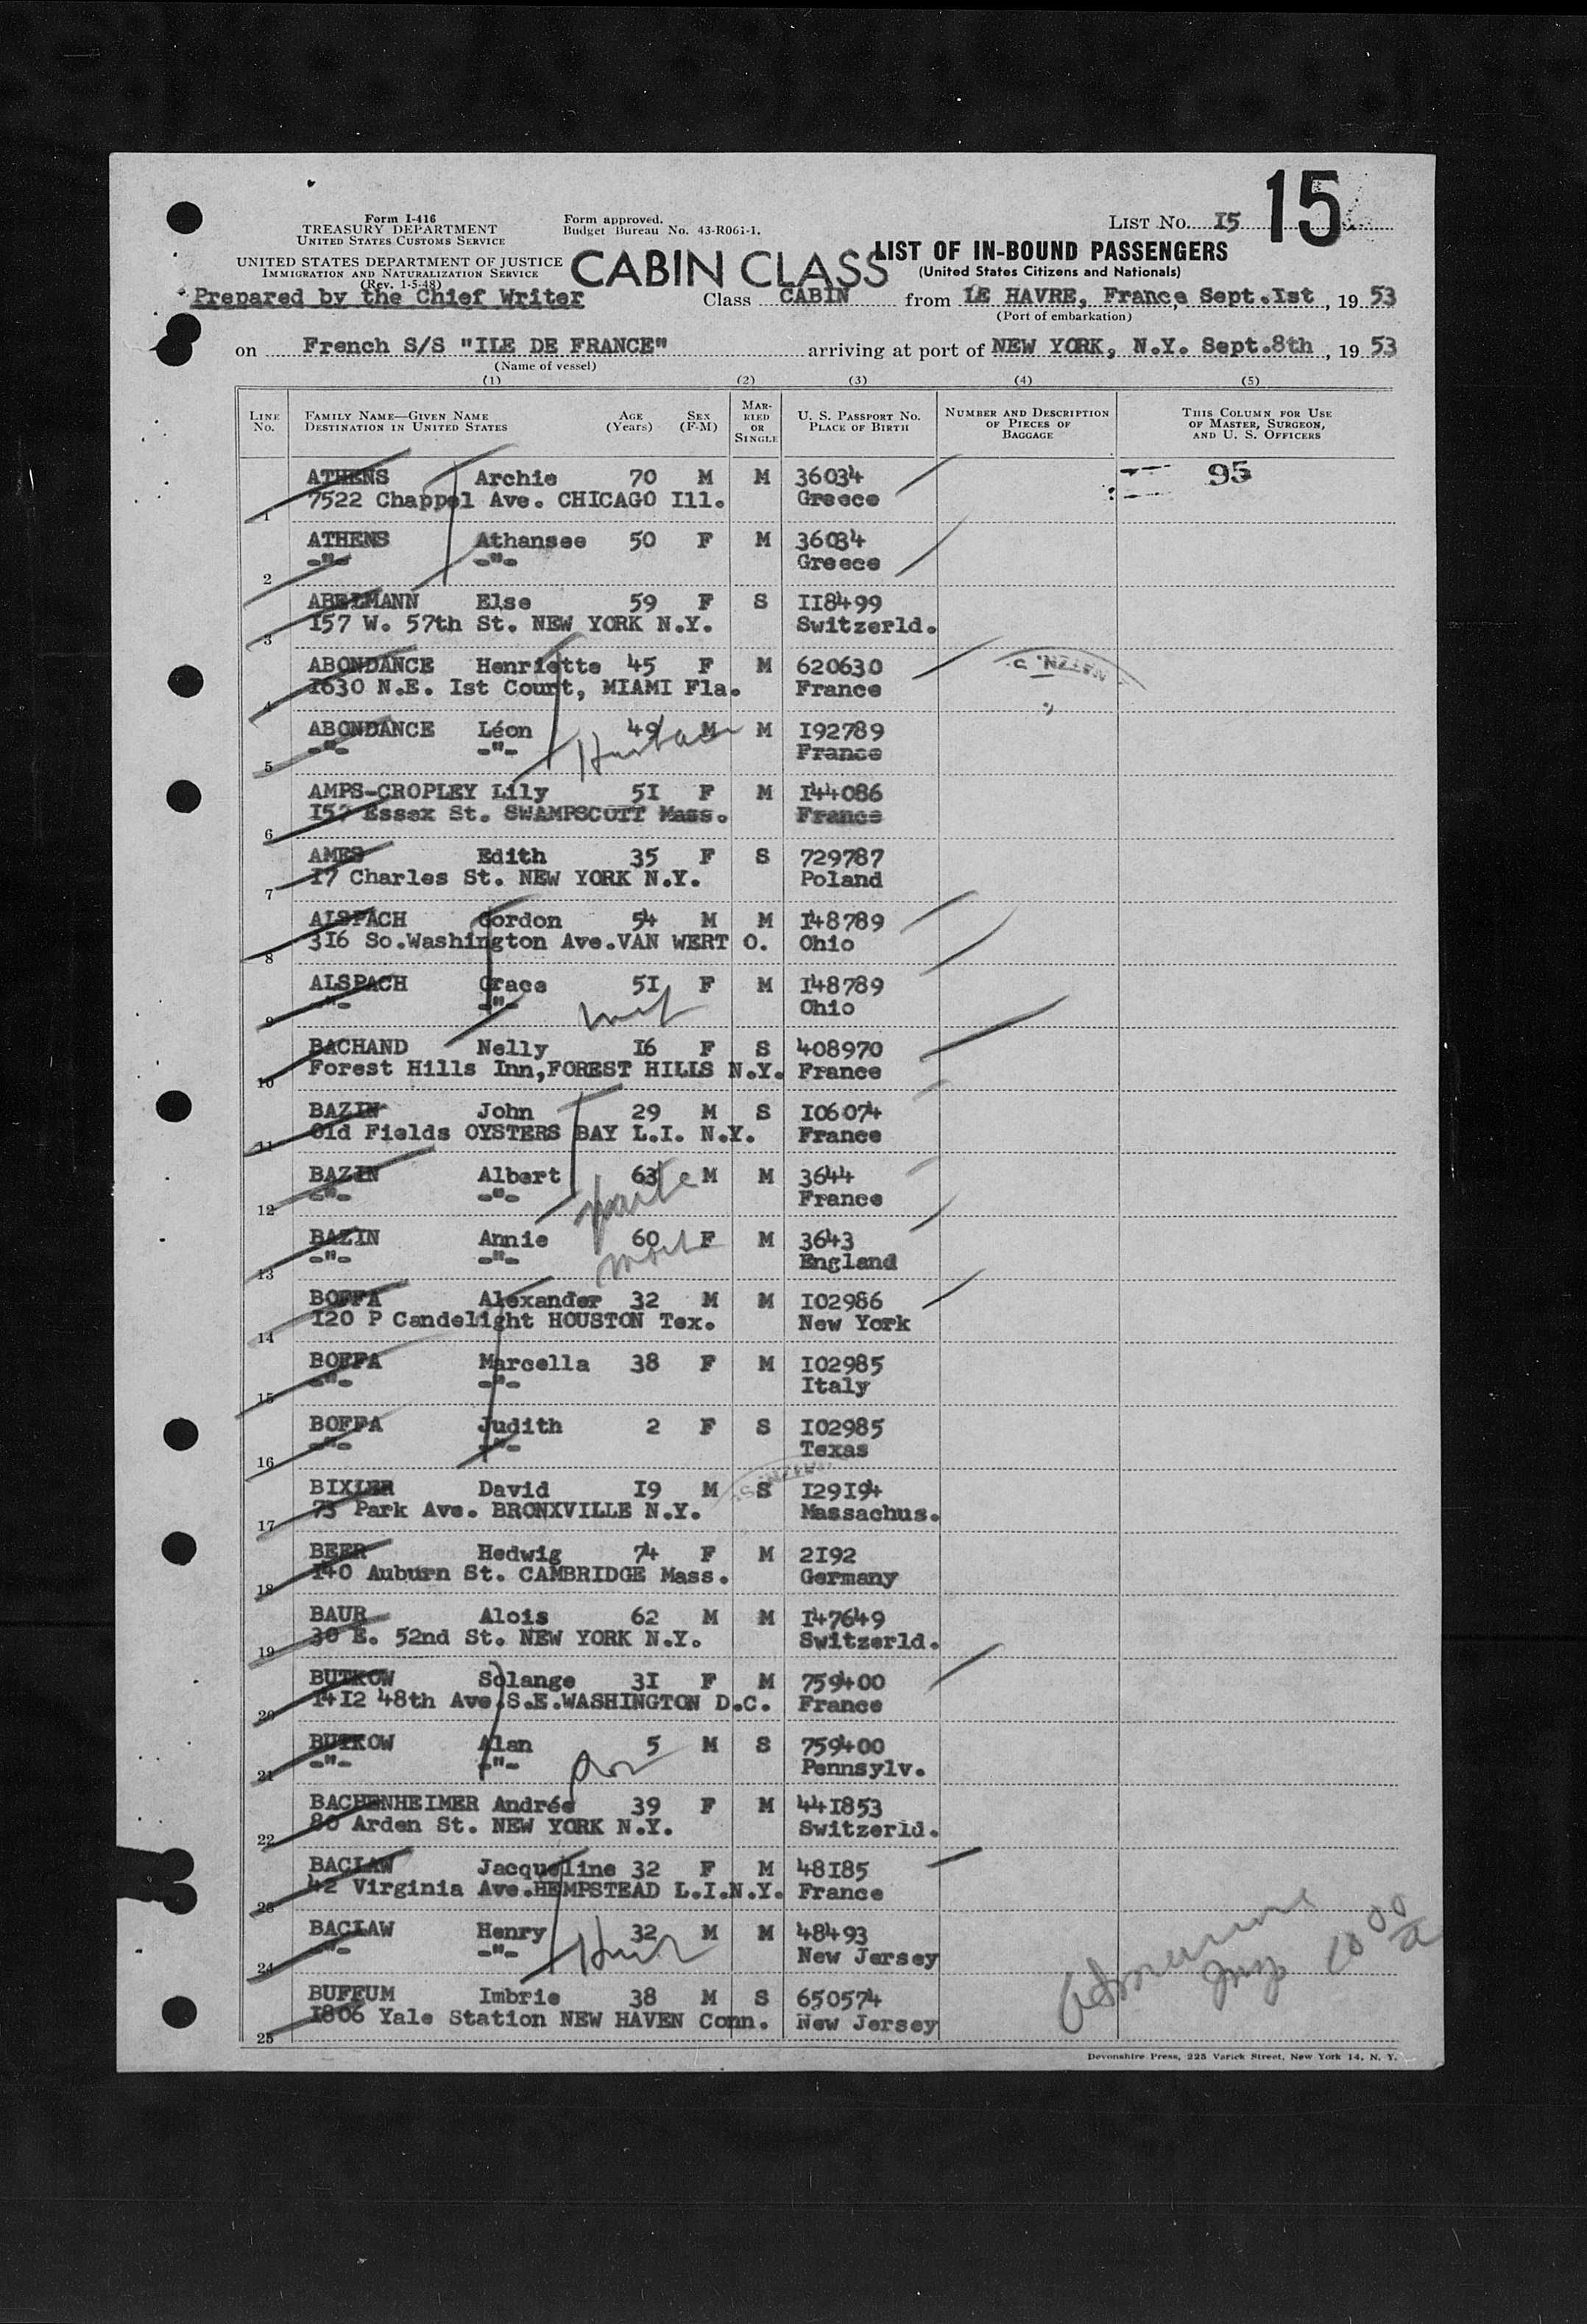 15
Form I-416
TREASURY DEPARTMENT
UNITED STATES CUSTOMS SERVICE
UNITED STATES DEPARTMENT OF JUSTICE
IMMIGRATION AND NATURALIZATION SERVICE
(Rev. 1-5-48)
Form approved.
Budget Bureau No. 43-R061-1.
LIST NO. I5
CABIN CLASS
LIST OF IN-BOUND PASSENGERS
(United States Citizens and Nationals)
Prepared by the Chief Writer
Class CABIN from LE HAVRE, France, Sept.Ist, 1953
(Port of embarkation)
on French S/S "ILE DE FRANCE" arriving at port of NEW YORK, N.Y. Sept.8th, 1953
(Name of vessel)
(1) (2) (3) (4) (5)
LINE NO. FAMILY NAME—GIVEN NAME DESTINATION IN UNITED STATES AGE (Years) SEX (F-M) MARRIED OR SINGLE U. S. PASSPORT NO. PLACE OF BIRTH NUMBER AND DESCRIPTION OF PIECES OF BAGGAGE THIS COLUMN FOR USE OF MASTER, SURGEON, AND U. S. OFFICERS
ATHENS Archie 70 M M 36034 95
1 7522 Chappel Ave. CHICAGO Ill. Greece
ATHENS Athansee 50 F M 36034
2 -"- -"- Greece
ABELMANN Else 59 F S II8499
3 I57 W. 57th St. NEW YORK N.Y. Switzerld.
ABONDANCE Henriette 45 F M 620630
4 I630 N.E. Ist Court, MIAMI Fla. France
ABONDANCE Léon 49 M M I92789
5 -"- -"- France
AMPS-CROPLEY Lily 5I F M I44086
6 Essex St. SWAMPSCOTT Mass. France
AMES Edith 35 F S 729787
7 I7 Charles St. NEW YORK N.Y. Poland
ALSPACH Gordon 54 M M I48789
8 3I6 So.Washington Ave.VAN WERT O. Ohio
ALSPACH Grace 5I F M I48789
9 -"- -"- Ohio
BACHAND Nelly I6 F S 408970
10 Forest Hills Inn,FOREST HILLS N.Y. France
BAZIN John 29 M S I06074
11 Old Fields OYSTERS BAY L.I. N.Y. France
BAZIN Albert 63 M M 3644
12 -"- -"- France
BAZIN Annie 60 F M 3643
13 -"- -"- England
BOFFA Alexander 32 M M I02986
14 I20 P Candelight HOUSTON Tex. New York
BOFFA Marcella 38 F M I02985
15 -"- -"- Italy
BOFFA Judith 2 F S I02985
16 -"- -"- Texas
BIXLER David I9 M S I29I94
17 73 Park Ave. BRONXVILLE N.Y. Massachus.
BEER Hedwig 74 F M 2I92
18 I40 Auburn St. CAMBRIDGE Mass. Germany
BAUR Alois 62 M M I47649
19 30 E. 52nd St. NEW YORK N.Y. Switzerld.
BUTKOW Solange 3I F M 759400
20 I4I2 48th Ave.S.E.WASHINGTON D.C. France
BUTKOW Alan 5 M S 759400
21 -"- -"- Pennsylv.
BACHENHEIMER Andrée 39 F M 44I853
22 80 Arden St. NEW YORK N.Y. Switzerld.
BACLAW Jacqueline 32 F M 48I85
23 42 Virginia Ave.HEMPSTEAD L.I.N.Y. France
BACLAW Henry 32 M M 48493
24 -"- -"- New Jersey
BUFFUM Imbrie 38 M S 650574
25 I806 Yale Station NEW HAVEN Conn. New Jersey
Devonshire Press, 225 Varick Street, New York 14, N. Y.